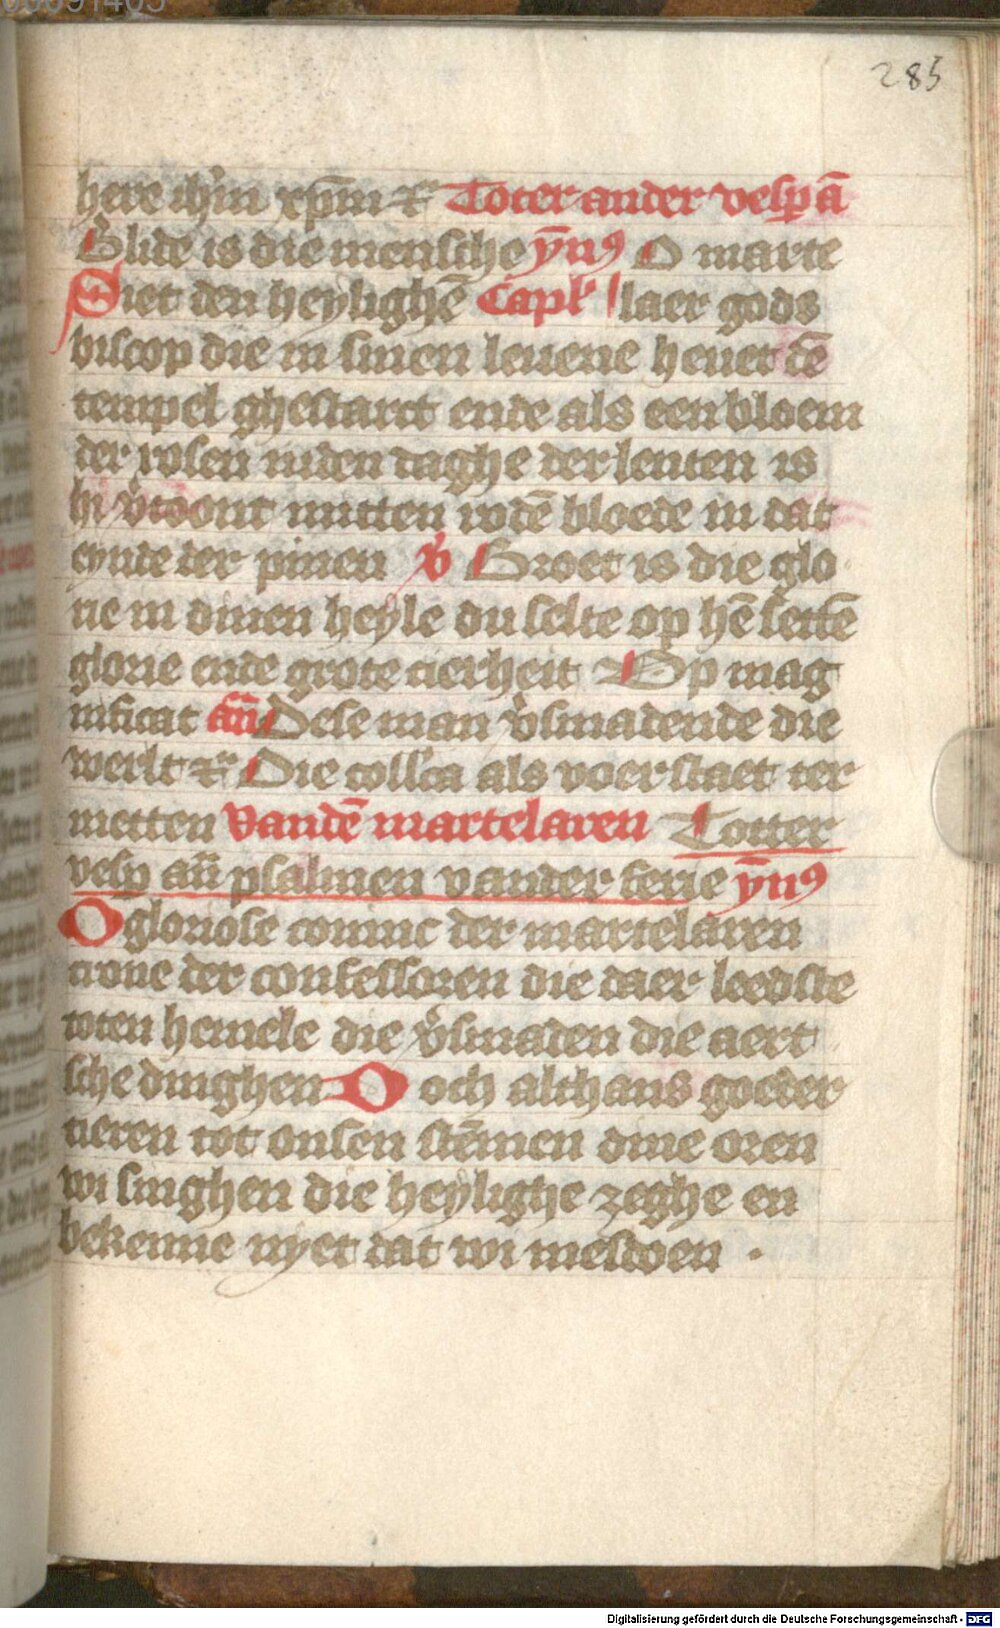 285
here ihm xpm etc Toter ander vesp ā
Blide is die mensche ȳnꝰ O marte
Siet den heylighē Capl laer gods
biscop die in sinen leuene heuet dē
tempel ghestarct ende als een bloem
der rosen inden daghe der lenten is
hi v̓toont mitten rodē bloede in dat
eynde der pinen v̓ Groet is die glo
rie in dinen heyle du selte op hē settē
glorie ende grote cierheit Op mag
nificat an̄ Dese man v̓smadende die
werlt etc Die coll̓ca als voer staet ter
metten Vandē martelaren Totter
vesp an̄ psalmen vander ferie ȳnꝰ
O gloriose coninc der martelaren
crone der confessoren die daer leedste
toten hemele die v̓smaden die aert
sche dinghen O och althans goeder
tieren tot onsen stēmen dine oren
wi singhen die heylighe zeghe en
bekenne nyet dat wi mesdoen .
Digitalisierung gefördert durch die Deutsche Forschungsgemeinschaft - DFG